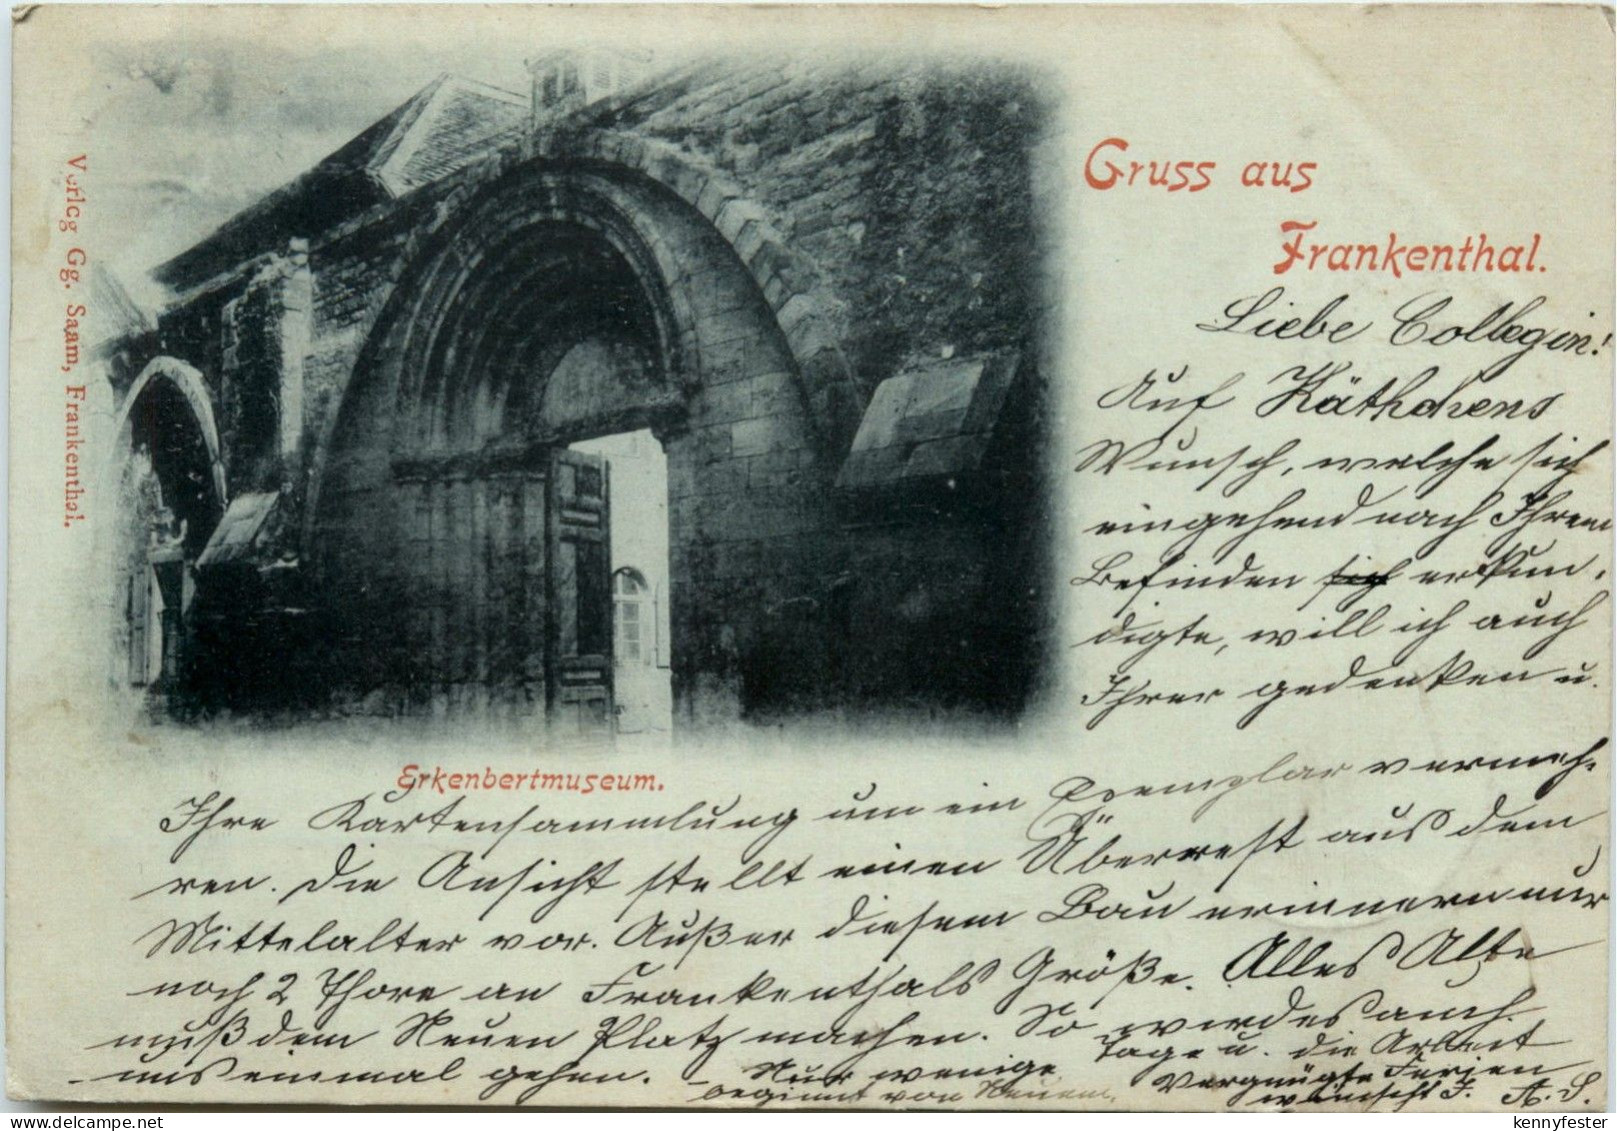 Verlag Gg. Saam, Frankenthal.
Gruss aus
Frankenthal.
Erkenbertmuseum.
Liebe Collegin!
Auf Käthchens
Wunsch, welche sich
eingehend nach Ihrem
Befinden sich erkun-
digte, will ich auch
Ihrer gedenken u.
Ihre Kartensammlung um ein Exemplar vermeh-
ren. Die Ansicht stellt einen Überrest aus dem
Mittelalter vor. Außer diesem Bau erinnern nur
noch 2 Thore an Frankenthals Größe. Alles Alte
muß dem Neuen Platz machen. So wird es auch
uns einmal gehen. – Nur wenige Tage u. die Arbeit
beginnt von Neuem.
Vergnügte Ferien
wünscht I. A. S.
kennyfester